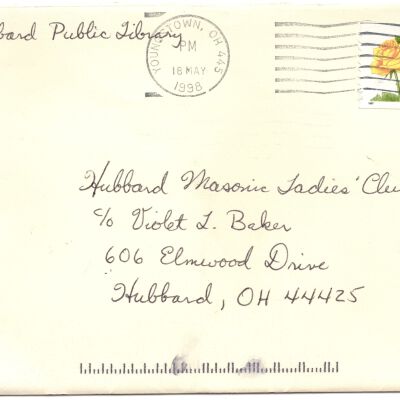 bbard Public Library
YOUNGSTOWN, OH 445
PM
18 MAY
1998
Hubbard Masonic Ladies' Clu
c/o Violet L. Baker
606 Elmwood Drive
Hubbard, OH 44425